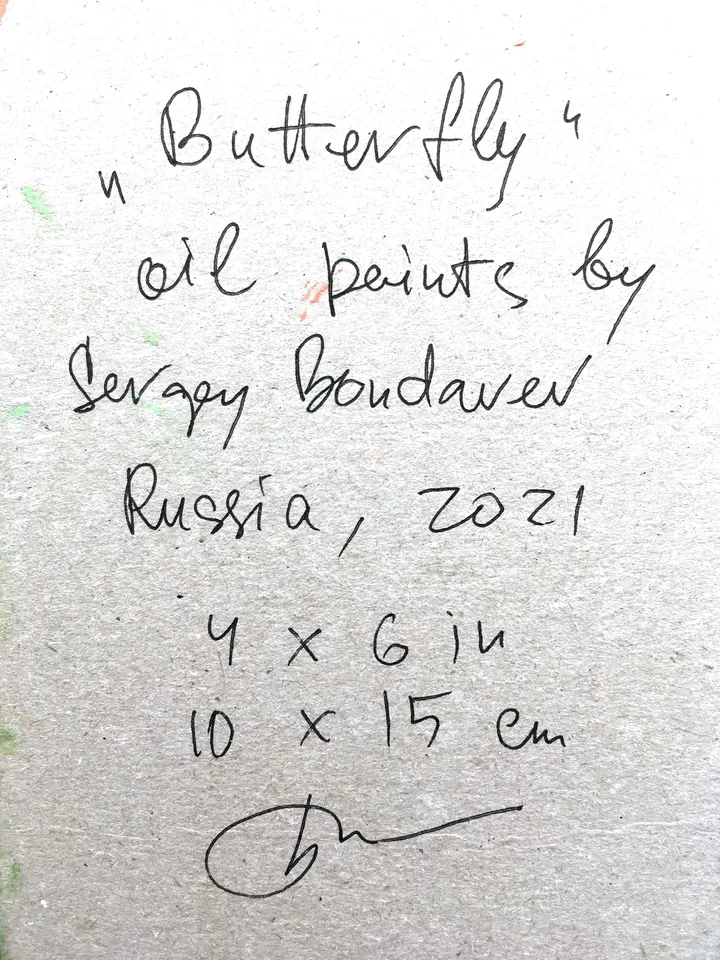 „Butterfly“
oil paints by
Sergey Bondarev
Russia, 2021
4 x 6 in
10 x 15 cm